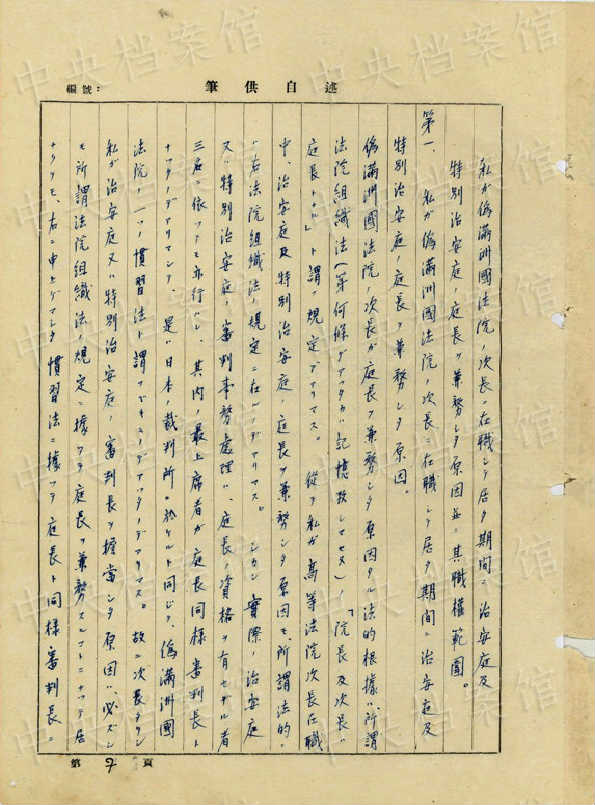 編號：
筆供自述
私ガ偽滿洲國法院ノ次長ニ在職シテ居タ期間ニ治安庭及
特別治安庭ノ庭長ヲ兼務シタ原因並ニ其職權範圍。
第一、私ガ偽滿洲國法院ノ次長ニ在職シテ居タ期間ニ治安庭及
特別治安庭ノ庭長ヲ兼務シタ原因。
偽滿洲國法院ノ次長ガ庭長ヲ兼務シタ原因タル法的根據ハ所謂
法院組織法(第何條デアツタカハ記憶致シマセヌ)ノ「院長及次長ハ
庭長トナル」ト謂フ規定デアリマス。從テ私ガ高等法院次長在職
中、治安庭及特別治安庭ノ庭長ヲ兼務シタ原因モ、所謂法的ノ
右法院組織法ノ規定ニ在ルノデアリマス。シカシ實際ノ治安庭
又ハ特別治安庭ノ審判事務處理ハ、庭長ノ資格ヲ有セザル者
三名ニ依ツテモ亦行ハレ、其内ノ最上席者ガ庭長同様審判長ト
ナツタノデアリマシテ、是ハ日本ノ裁判所ニ於ケルト同ジク、偽滿洲國
法院ノ一ツノ慣習法ト謂フベキモノデアツタノデアリマス。故ニ次長タリシ
私ガ治安庭又ハ特別治安庭ノ審判長ヲ擔當シタ原因ハ、必ズシ
モ所謂法院組織法ノ規定ニ據ツテ庭長ヲ兼務スルコトニナツテ居
ナクテモ、右ニ申上ゲマシタ慣習法ニ據ツテ庭長ト同様審判長ニ
第 頁
中央档案馆